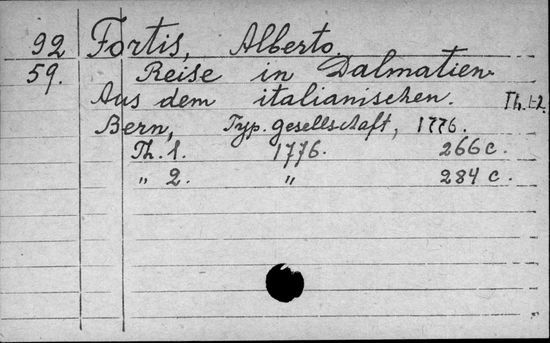 92 Fortis, Alberto.
59. Reise in Dalmatien.
Aus dem italianischen. Th. 1-2.
Bern, Typ. gesellschaft, 1776.
Th. 1. 1776. 266 c.
„ 2. „ 284 c.